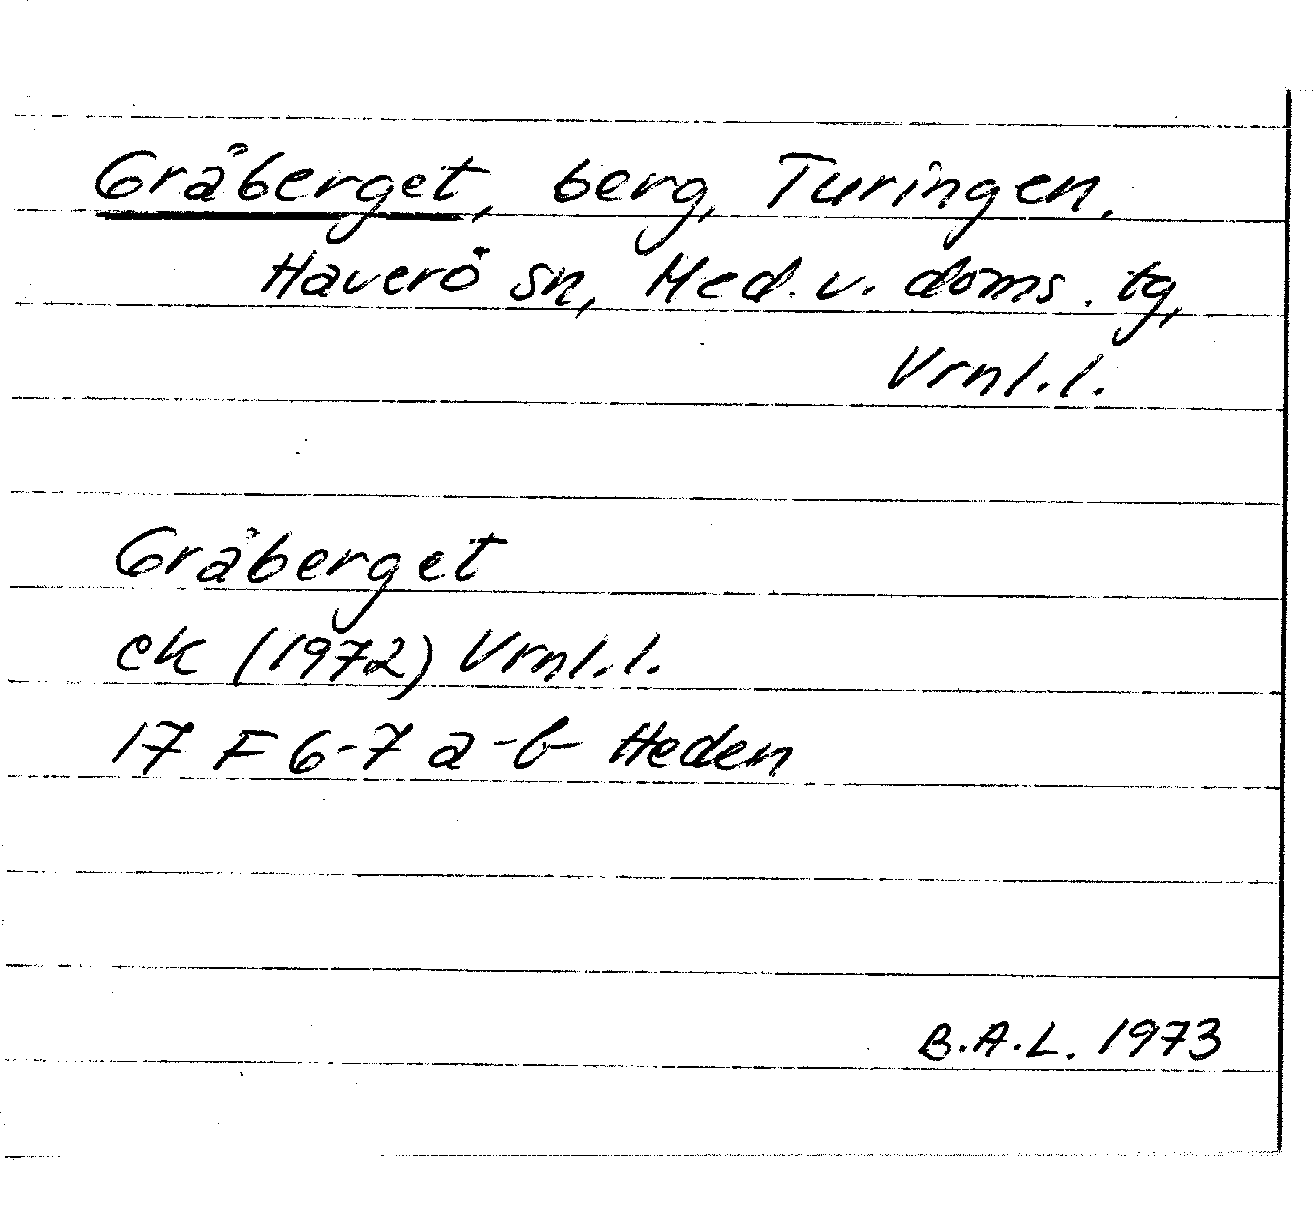 Gråberget, berg, Turingen.
Haverö sn, Med. v. doms. tg,
Vrnl.l.
Gråberget
ek (1972) Vrnl.l.
17 F 6-7 a-b Heden
B.A.L. 1973